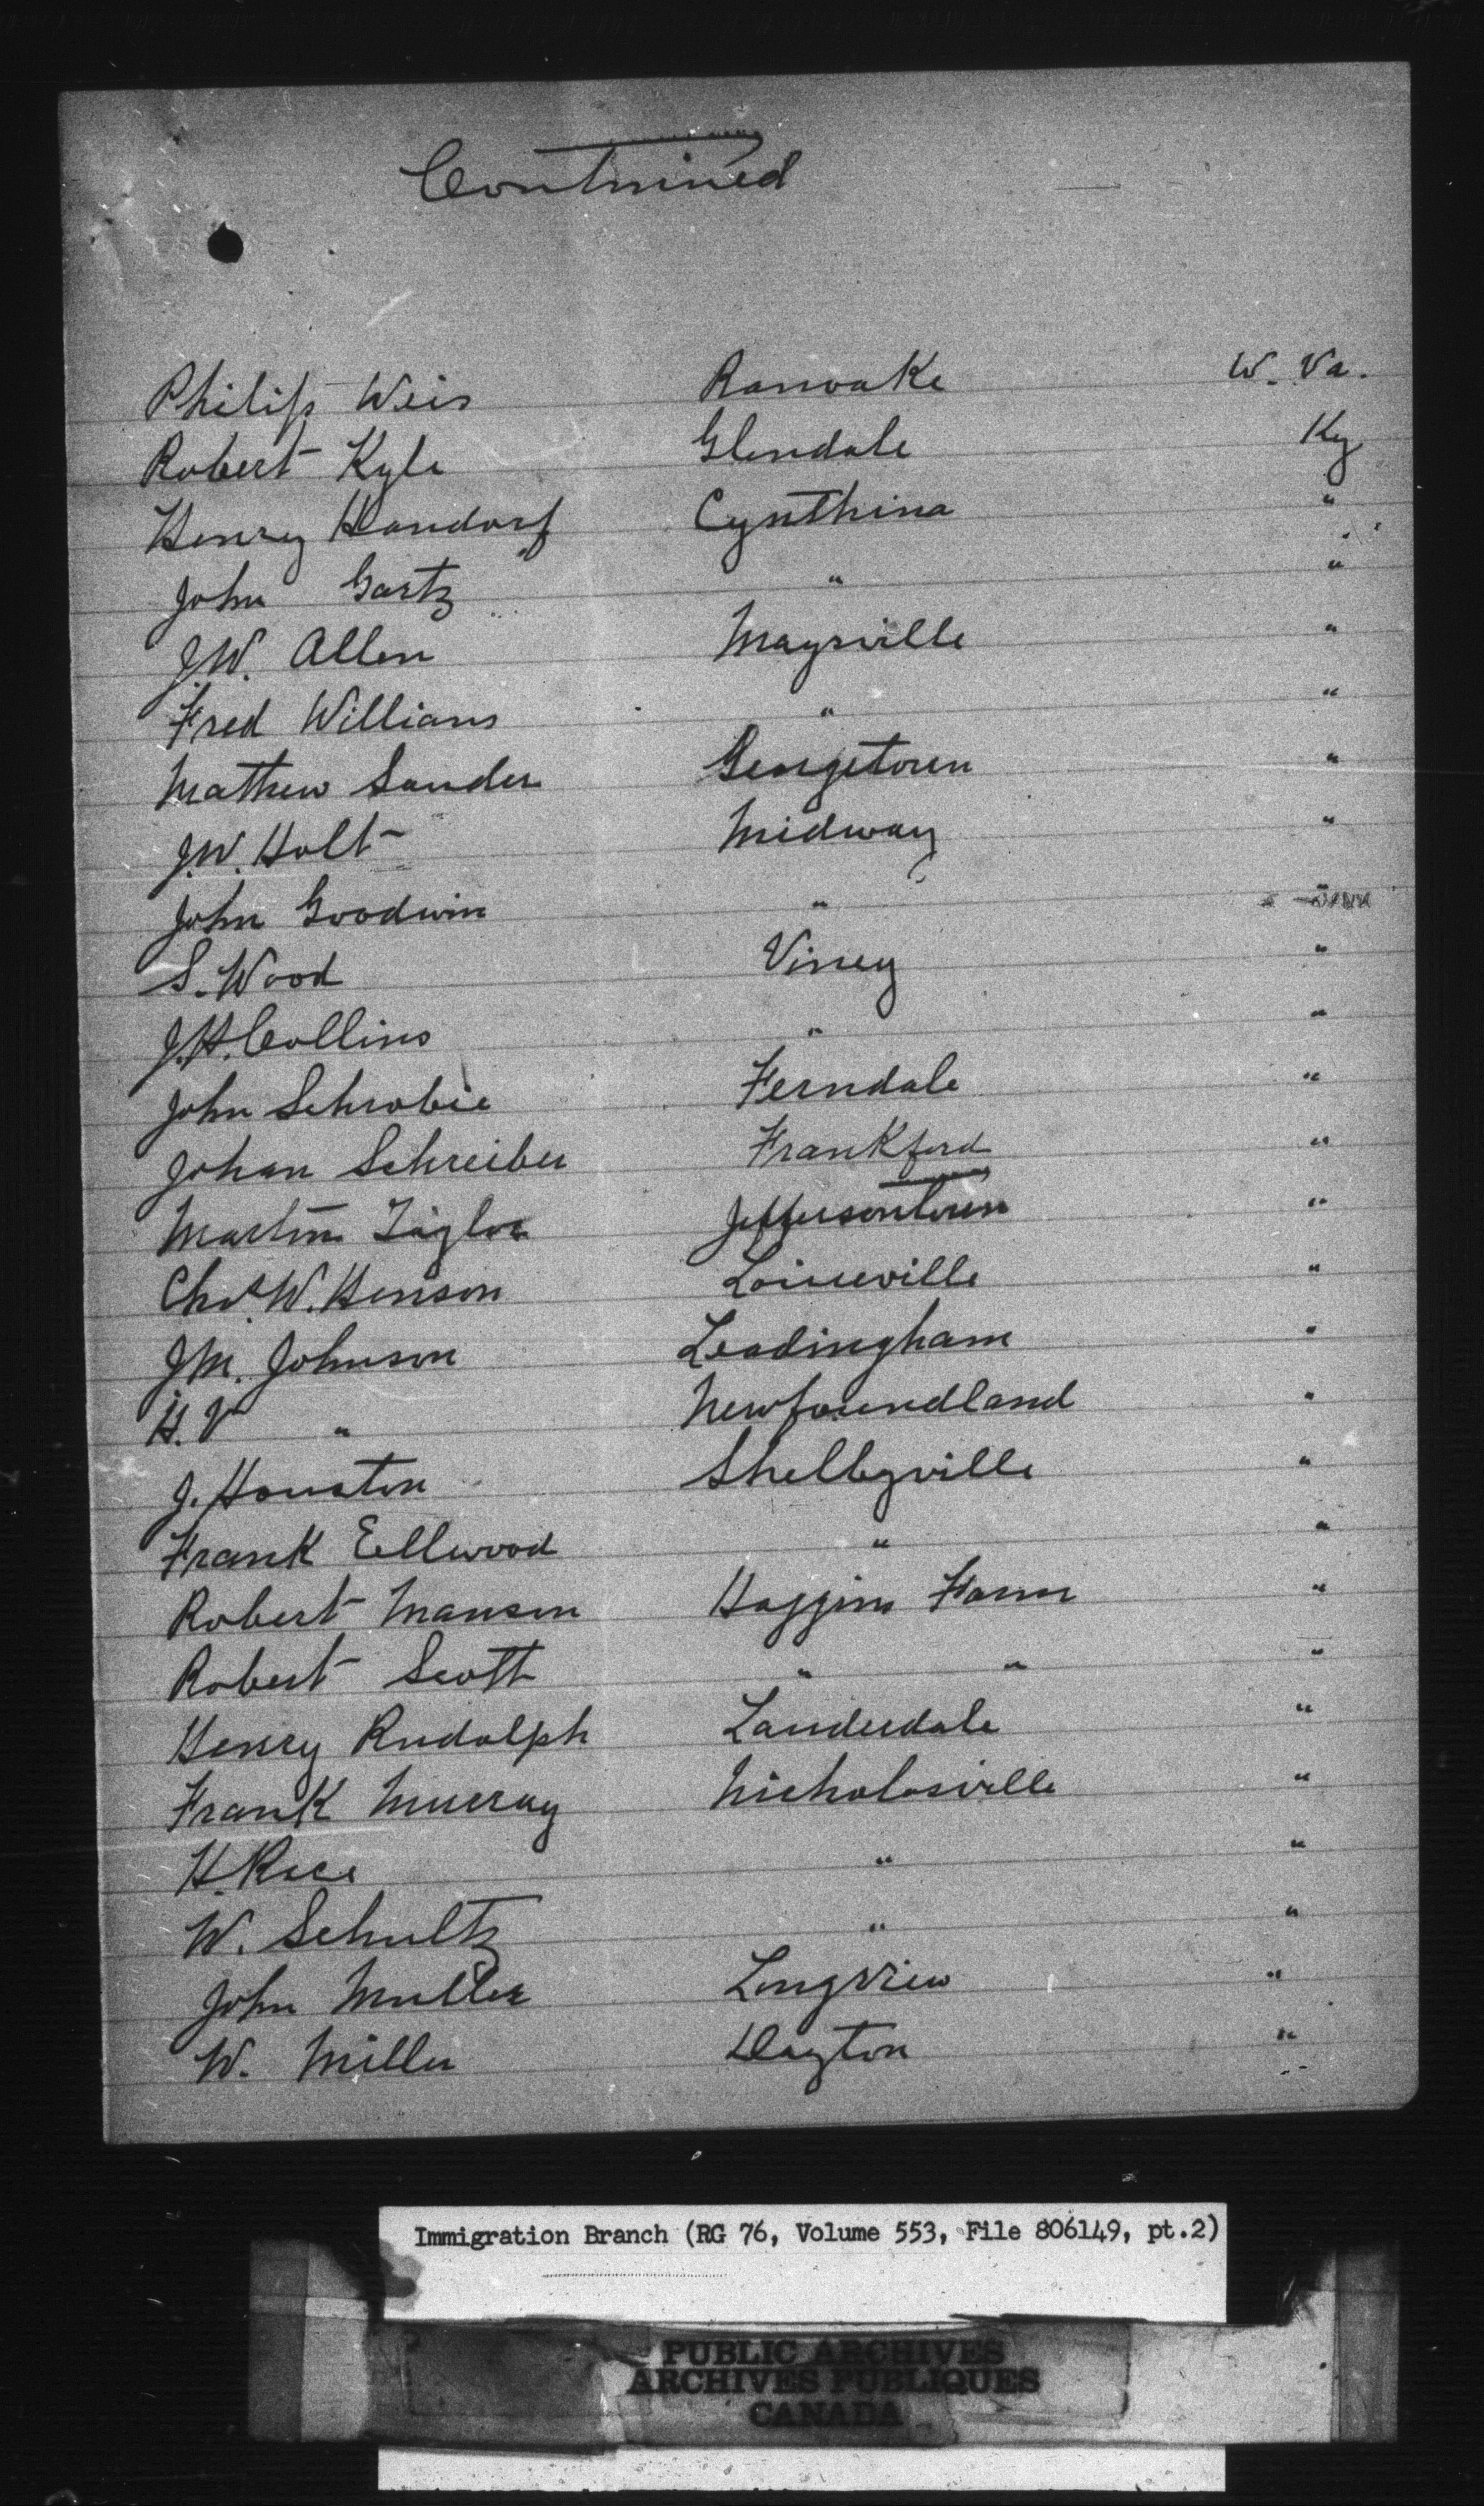 Continued
Philip Weis Ranoake W. Va.
Robert Kyle Glendale Ky
Henry Handorf Cynthina "
John Gartz " "
J.W. Allen Maysville "
Fred Williams " "
Mathew Sander Georgetown "
J.W. Holt Midway "
John Goodwin " "
S. Wood Viney "
J.H. Collins " "
John Schrobie Ferndale "
Johan Schreiber Frankford "
Martin Taylor Jeffersontown "
Chas W. Henson Louieville "
J.M. Johnson Leadingham "
H.V " Newfoundland "
J. Houston Shelbyville "
Frank Eellwood " "
Robert Manson Haggins Farm "
Robert Scott " " "
Henry Rudolph Lauderdale "
Frank Murray Nicholasville "
H. Race " "
W. Schultz " "
John Muller Longview "
W. Miller Dayton "
Immigration Branch (RG 76, Volume 553, File 806149, pt.2)
PUBLIC ARCHIVES
ARCHIVES PUBLIQUES
CANADA